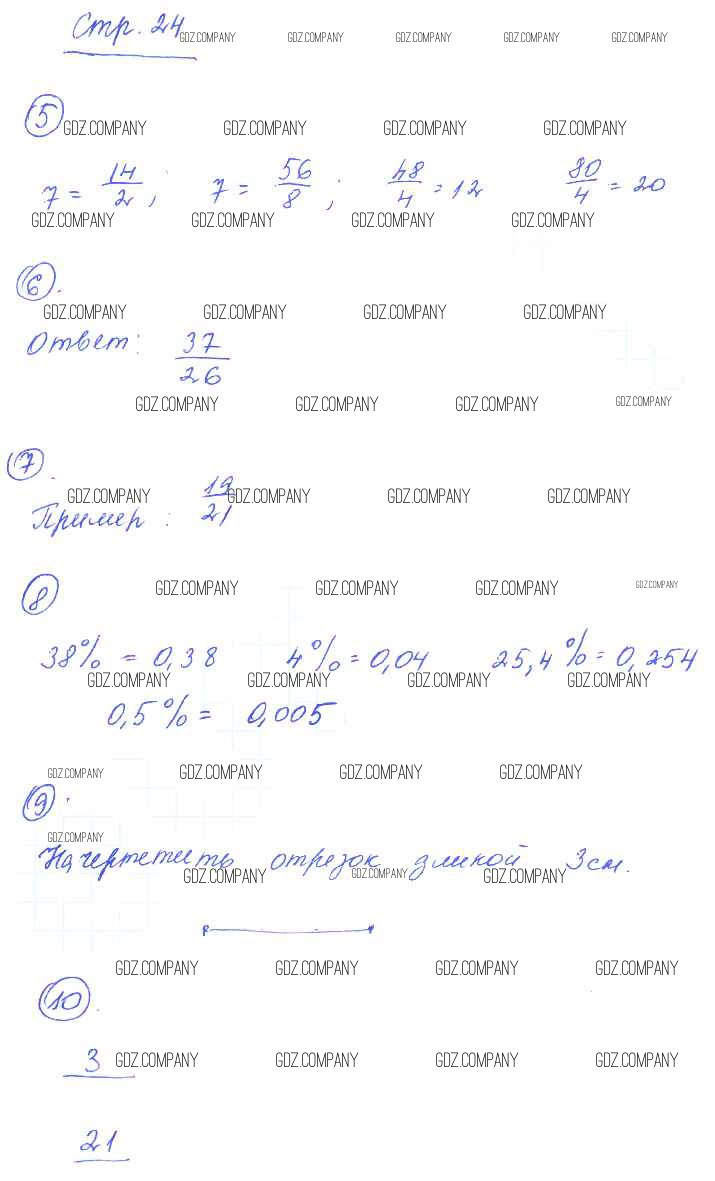 Стр. 24
GDZ.COMPANY GDZ.COMPANY GDZ.COMPANY GDZ.COMPANY GDZ.COMPANY
5
GDZ.COMPANY GDZ.COMPANY GDZ.COMPANY GDZ.COMPANY
7 = 14/2 ; 7 = 56/8 ; 48/4 = 12 80/4 = 20
GDZ.COMPANY GDZ.COMPANY GDZ.COMPANY GDZ.COMPANY
6.
GDZ.COMPANY GDZ.COMPANY GDZ.COMPANY GDZ.COMPANY
Ответ: 37/26
GDZ.COMPANY GDZ.COMPANY GDZ.COMPANY GDZ.COMPANY
7.
GDZ.COMPANY GDZ.COMPANY GDZ.COMPANY GDZ.COMPANY
Пример: 19/21
8
GDZ.COMPANY GDZ.COMPANY GDZ.COMPANY GDZ.COMPANY
38% = 0,38 4% = 0,04 25,4% = 0,254
GDZ.COMPANY GDZ.COMPANY GDZ.COMPANY GDZ.COMPANY
0,5% = 0,005
GDZ.COMPANY GDZ.COMPANY GDZ.COMPANY GDZ.COMPANY
9.
GDZ.COMPANY
отрезок длиной 3см.
GDZ.COMPANY GDZ.COMPANY GDZ.COMPANY
GDZ.COMPANY GDZ.COMPANY GDZ.COMPANY GDZ.COMPANY
10.
3
GDZ.COMPANY GDZ.COMPANY GDZ.COMPANY GDZ.COMPANY
21